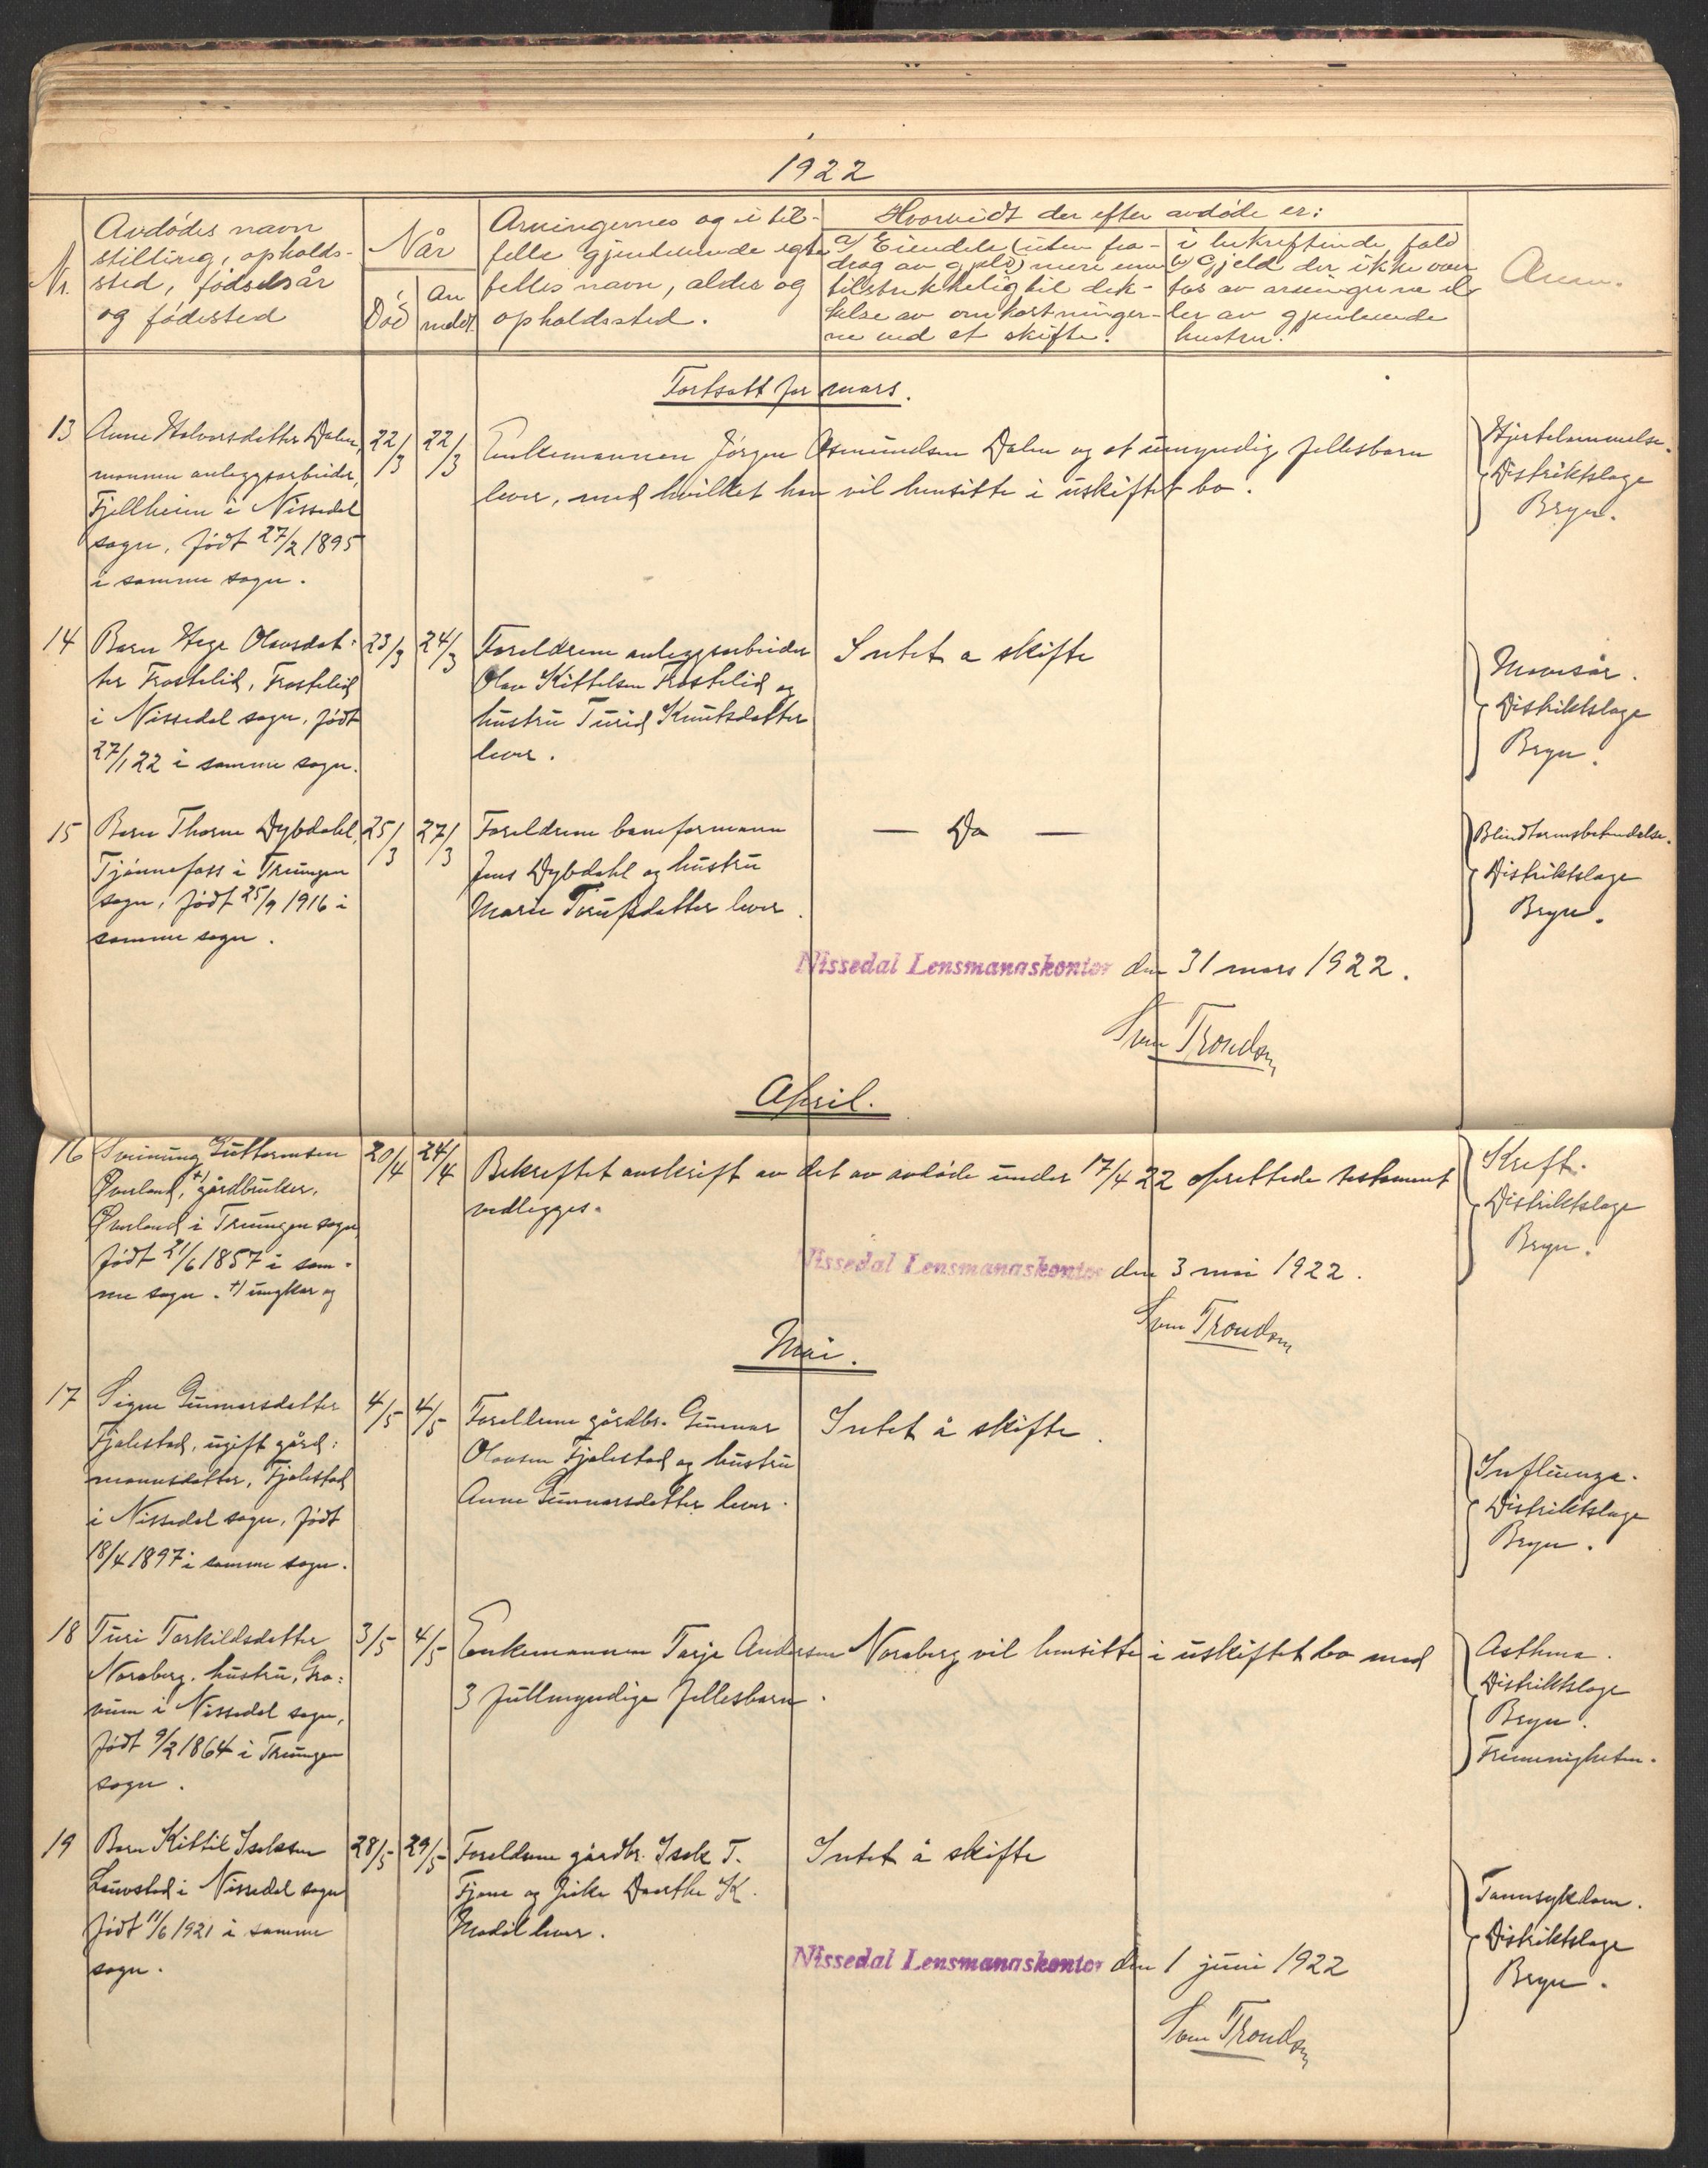 1922
Nr.
Avdødes navn
stilling, opholds-
sted, fødselsår
og fødested
Når
Død
An
meldt.
Arvingernes og i til-
felle gjenlevende egte
felles navn, alder og
opholdssted.
Hvorvidt der efter avdøde er:
a) Eiendele (uten fra-
drag av gjeld) mere enn
tilstrekkelig til dek-
kelse av omkostninger-
ne ved et skifte.
i bekreftende fald
b) Gjeld der ikke over
tas av arvingerne el-
ler av gjenlevende
hustru.
Anm.
Fortsatt for mars.
13
Anne Halvorsdatter Dalen,
mannen anleggsarbeider,
Fjellheim i Nissedal
sogn, født 27/2 1895
i samme sogn.
22/3
22/3
Enkemannen Jørgen Asmundsen Dalen og et umyndig fellesbarn
lever, med hvilket han vil hensitte i uskiftet bo.
Hjertelammelse.
Distriktslæge
Bryn.
14
Barn Hege Olavsdat-
ter Frostelid, Frostelid
i Nissedal sogn, født
27/1 22 i samme sogn.
23/3
24/3
Foreldrene anleggsarbeider
Olav Kittelsen Frostelid og
hustru Turid Knutsdatter
lever.
Intet a skifte
Mavesår.
Distriktslæge
Bryn.
15
Barn Thorne Dybdahl,
Tjønnefoss i Treungen
sogn, født 25/9 1916 i
samme sogn.
25/3
27/3
Foreldrene baneformann
Jens Dybdahl og hustru
Marie Tarjesdatter lever.
— Do —
Blindtarmsbetendelse.
Distriktslæge
Bryn.
Nissedal Lensmannskontor den 31 mars 1922.
Sven Trondsen
April.
16
Sveinung Guttormsen
Øverland, +) gårdbruker,
Øverland i Treungen sogn
født 21/6 1857 i sam-
me sogn. +) ungkar og
20/4
24/4
Bekreftet avskrift av det av avdøde under 17/4 22 oprettede testament
vedlegges.
Kreft.
Distriktslæge
Bryn.
Nissedal Lensmannskontor den 3 mai 1922.
Sven Trondsen
Mai.
17
Signe Gunnarsdatter
Fjalestad, ugift gård-
mannsdatter, Fjalestad
i Nissedal sogn, født
18/4 1897 i samme sogn.
4/5
4/5
Foreldrene gårdbr. Gunnar
Olavsen Fjalestad og hustru
Anne Gunnarsdatter lever.
Intet å skifte.
Influenza.
Distriktslæge
Bryn.
18
Turi Torkildsdatter
Noraberg, hustru, Gra-
vum i Nissedal sogn,
født 9/2 1864 i Treungen
sogn.
3/5
4/5
Enkemannen Tarje Andersen Noraberg vil hensitte i uskiftet bo med
3 fullmyndige fellesbarn.
Asthma.
Distriktslæge
Bryn.
19
Barn Kittil Isaksen
Lauvstad i Nissedal sogn
født 11/6 1921 i samme
sogn.
28/5
29/5
Foreldrene gårdbr. Isak T.
Fjone og Dorthe K.
lever.
Intet å skifte
Tannsykdom.
Distriktslæge
Bryn.
Nissedal Lensmannskontor den 1 juni 1922
Sven Trondsen